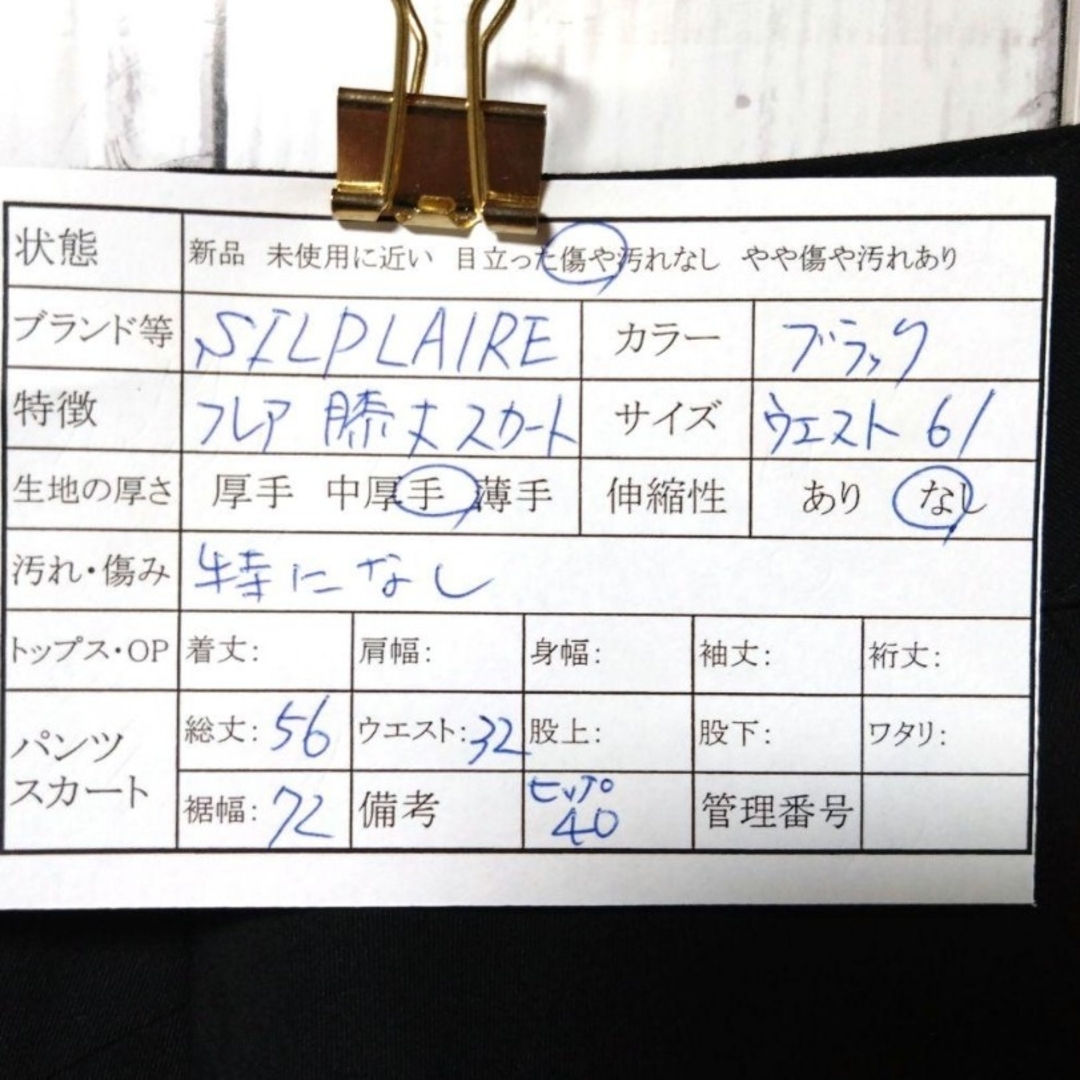 状態 新品 未使用に近い 目立った傷や汚れなし やや傷や汚れあり
ブランド等 SILPLAIRE カラー ブラック
特徴 フレア 膝丈スカート サイズ ウエスト 61
生地の厚さ 厚手 中厚手 薄手 伸縮性 あり なし
汚れ・傷み 特になし
トップス・OP 着丈: 肩幅: 身幅: 袖丈: 裄丈:
パンツ スカート 総丈:56 ウエスト:32 股上: 股下: ワタリ:
裾幅:72 備考 ヒップ 40 管理番号